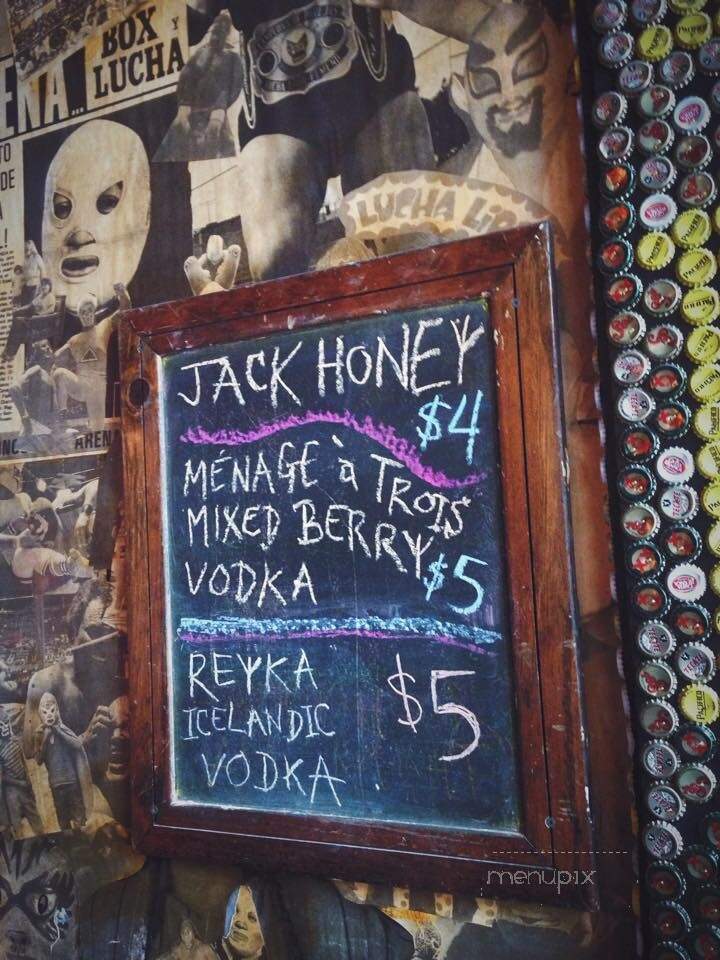 BOX Y
LUCHA
ENA...
LUCHA LI
ARENA
JACK HONEY
$4
MÉNAGE à TROIS
MIXED BERRY
VODKA $5
REYKA
ICELANDIC
VODKA
$5
PACIFICO
TECATE
menupix